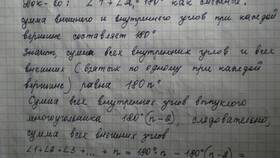 Док-во: ∠1+∠2=180° как смежные
сумма внешнего и внутреннего углов при каждой
вершине составляет 180°
Значит сумма всех внутренних углов и всех
внешних (взятых по одному при каждой
вершине) равна 180°n
Сумма всех внутренних углов выпуклого
многоугольника 180°(n-2) следовательно,
сумма всех внешних углов
∠1+∠2+∠3+...+ n = 180°n - 180°(n-2) =